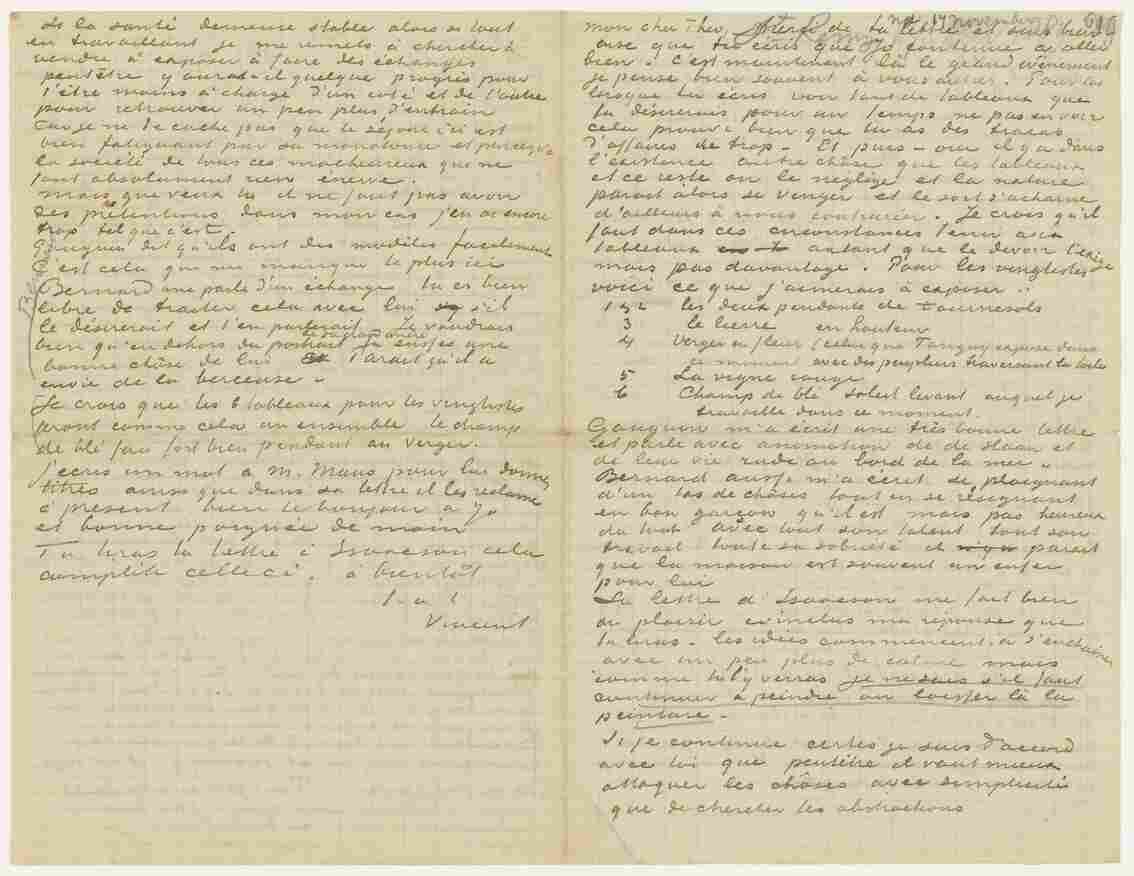 Si la santé demeure stable alors si tout
en travaillant je me remets à chercher à
vendre à exposer à faire des échanges
peutêtre y aurat-il quelque progrès pour
t'être moins à charge d'un coté et de l'autre
pour retrouver un peu plus d'entrain
Car je ne te cache pas que le séjour ici est
bien fatiguant par sa monotonie et parceque
la société de tous ces malheureux qui ne
font absolument rien énerve.
mais que veux tu il ne faut pas avoir
des prétentions dans mon cas j'en ai encore
trop tel que c'est.
Gauguin dit qu'ils ont des modèles facilement
c'est cela qui me manque le plus ici
Bernard
Bernard me parle d'un échange tu es bien
libre de traiter cela avec lui s'il
le désirerait et t'en parlerait Je voudrais
bien qu'en dehors du portrait de sa grand mère tu eusses une
bonne chôse de lui Parait qu'il a
envie de la berceuse.
Je crois que les 6 tableaux pour les vingtistes
feront comme cela un ensemble le champ
de blé fera fort bien pendant au verger.
j'écris un mot à M. Maus pour lui donner
titres ainsi que dans sa lettre il les réclame
à présent bien le bonjour à Jo
et bonne poignée de main
Tu liras la lettre à Isaacson cela
complète celle ci. à bientôt
t. à t.
Vincent
nov. 616
mon cher Theo, Merci de ta lettre et suis bien
aise que tu écris que Jo continue à aller
bien. C'est maintenant là le grand évènement
je pense bien souvent à vous autres. Pour toi
lorsque tu écris voir tant de tableaux que
tu désirerais pour un temps ne pas en voir
cela prouve bien que tu as des tracas
d'affaires de trop. Et puis – oui il y a dans
l'existence autre chôse que les tableaux
et ce reste on le néglige et la nature
parait alors se venger et le sort s'acharne
d'ailleurs à nous contrarier. Je crois qu'il
faut dans ces circonstances tenir aux
tableaux autant que le devoir l'exige
mais pas davantage. Pour les vingtistes
voici ce que j'aimerais à exposer:
1 & 2 les deux pendants de tournesols
3 le lierre en hauteur
4 Verger en fleur (celui que Tanguy expose dans
ce moment avec des peupliers traversant la toile
5 La vigne rouge
6 Champ de blé soleil levant auquel je
travaille dans ce moment.
Gauguin m'a écrit une très bonne lettre
et parle avec animation de de Haan et
de leur vie rude au bord de la mer.
Bernard aussi m'a écrit se plaignant
d'un tas de chôses tout en se résignant
en bon garçon qu'il est mais pas heureux
du tout avec tout son talent tout son
travail toute sa sobriété il parait
que la maison est souvent un enfer
pour lui
La lettre d'Isaacson me fait bien
du plaisir ci inclus ma réponse que
tu liras. les idées commencent à s'enchainer
avec un peu plus de calme mais
comme tu l'y verras je ne sais s'il faut
continuer à peindre ou laisser là la
peinture.
Si je continue certes je suis d'accord
avec toi que peutêtre il vaut mieux
attaquer les chôses avec simplicité
que de chercher les abstractions